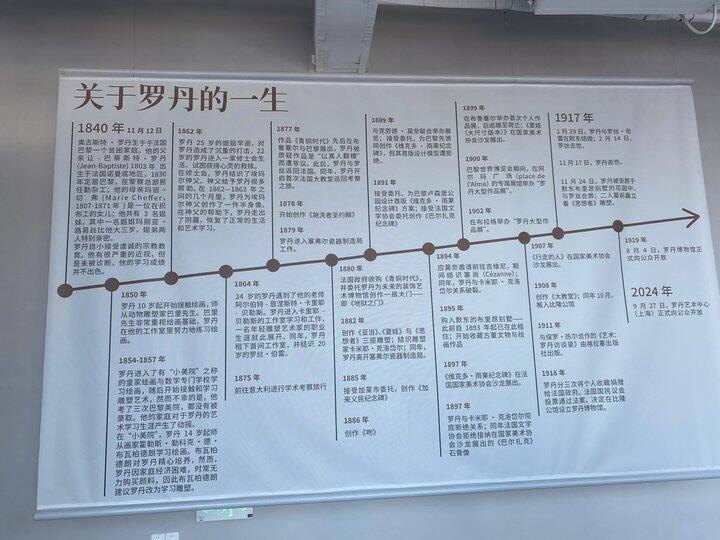 关于罗丹的一生
1840 年 11 月 12 日
奥古斯特·罗丹生于于法国
巴黎一个贫困家庭。他的父
亲让-巴蒂斯特·罗丹
(Jean-Baptiste) 1803 年出
生于法国诺曼底地区，1830
年定居巴黎，在警察总部担
任勤杂工；他的母亲玛丽·
切弗 (Marie Cheffer,
1807-1871 年) 是一位在织
布工的女儿；他共有 3 名姐
妹，其中一名姐姐玛丽亚·
路易丝比他大三岁，姐弟两
人特别亲密。
罗丹自小接受虔诚的宗教教
育。他有很严重的近视，但
是未被诊断，他的学习成绩
并不出色。
1850 年
罗丹 10 岁起开始接触绘画，师
从动物雕塑家巴里先生。巴里
先生非常重视绘画基础，罗丹
在他的工作室里努力地练习绘
画。
1854-1857 年
罗丹进入了有“小美院”之称
的皇家绘画与数学专门学校学
习绘画，随后开始接触和学习
雕塑艺术，然而不幸的是，他
考了三次巴黎美院，都没有被
录取。他的家庭对于罗丹的艺
术学习生涯产生了动摇。
在“小美院”，罗丹 14 岁起师
从画家霍勒斯·勒科克·德·
布瓦柏德朗学习绘画。布瓦柏
德朗对罗丹精心培养，然而，
罗丹因家庭经济困难，时常无
力购买颜料，因此布瓦柏德朗
建议罗丹改为学习雕塑。
1862 年
罗丹 25 岁的姐姐早逝，对
罗丹造成了沉重的打击，22
岁的罗丹进入一家修士会生
活，试图获得心灵的救赎。
在修士会，罗丹结识了埃玛
尔神父。神父给予罗丹很多
帮助。在 1862—1863 年之
间的几个月里，罗丹为埃玛
尔神父创作了一件半身像。
在神父的帮助下，罗丹走出
了阴霾，恢复了正常的生活
和艺术学习。
1864 年
24 岁的罗丹遇到了他的老师
阿尔伯特·恩涅斯特·卡里耶
·贝勒斯。罗丹进入卡里耶·
贝勒斯的工作室学习和工作，
一名年轻雕塑艺术家的职业
生涯就此展开。同年，罗丹
租下首间工作室，并结识 20
岁的罗丝·伯雷。
1875 年
前往意大利进行学术考察旅行
1877 年
作品《青铜时代》先后在布
鲁塞尔与巴黎展出，罗丹被
质疑作品是“以真人翻模”
而遭非议。此后，罗丹与罗
丝返回法国。同年，罗丹开
启首次法国大教堂巡回考察
之旅。
1878 年
开始创作《施洗者圣约翰》
1879 年
罗丹进入塞弗尔瓷器制造局
工作。
1880 年
法国政府收购《青铜时代》，
并委托罗丹为未来的装饰艺
术博物馆创作一扇大门——
即《地狱之门》
1882 年
创作《亚当》、《夏娃》与《思
想者》三座雕塑；结识雕塑
家卡米耶·克洛岱尔；同年，
罗丹离开塞弗尔瓷器制造局。
1885 年
接受加莱市委托，创作《加
来义民纪念碑》
1886 年
创作《吻》
1889 年
与克劳德·莫奈联合举办展
览；接受委托，为巴黎先贤
祠创作《维克多·雨果纪念
碑》，但其首版设计模型遭拒
绝。
1891 年
接受委托，为巴黎卢森堡公
园设计首版《维克多·雨果
纪念碑》方案；接受法国文
学协会委托创作《巴尔扎克
纪念碑》
1894 年
应莫奈邀请前往吉维尼，期
间结识塞尚（Cézanne）；
同年，罗丹与卡米耶·克洛
岱尔关系破裂。
1895 年
购入默东的布里昂别墅——
此前自 1893 年起已在此租
住；开始收藏古董文物与绘
画作品
1897 年
《维克多·雨果纪念碑》在法
国国家美术协会沙龙展出。
1897 年
罗丹与卡米耶·克洛岱尔彻
底断绝关系；同年法国文学
协会拒绝接纳在国家美术协
会沙龙展出的《巴尔扎克》
石膏像
1899 年
在布鲁塞尔举办首次个人作
品展，后巡展至荷兰；《夏娃
（大尺寸版本）》在国家美术
协会沙龙展出。
1900 年
巴黎世界博览会期间，在阿
尔玛广场（place de
l'Alma）的专属展馆举办“罗
丹大型作品展”。
1902 年
在布拉格举办“罗丹大型作
品展”。
1907 年
《行走的人》在国家美术协会
沙龙展出。
1908 年
创作《大教堂》；同年 10 月，
搬入比隆公馆
1911 年
与保罗·热尔合作的《艺术：
罗丹访谈录》由格拉塞出版
社出版。
1916 年
罗丹分三次将个人收藏捐赠
给法国政府。法国国民议会
投票通过法案，决定在比隆
公馆设立罗丹博物馆。
1917 年
1 月 29 日，罗丹与罗丝·伯
雷在默东结婚；2 月 14 日，
罗丝去世。
11 月 17 日，罗丹逝世。
11 月 24 日，罗丹被安葬于
默东布里昂别墅的花园中，
与罗丝合葬；二人墓前矗立
着《思想者》雕塑。
1919 年
8 月 4 日，罗丹博物馆正
式向公众开放
2024 年
9 月 27 日，罗丹艺术中心
（上海）正式向公众开放